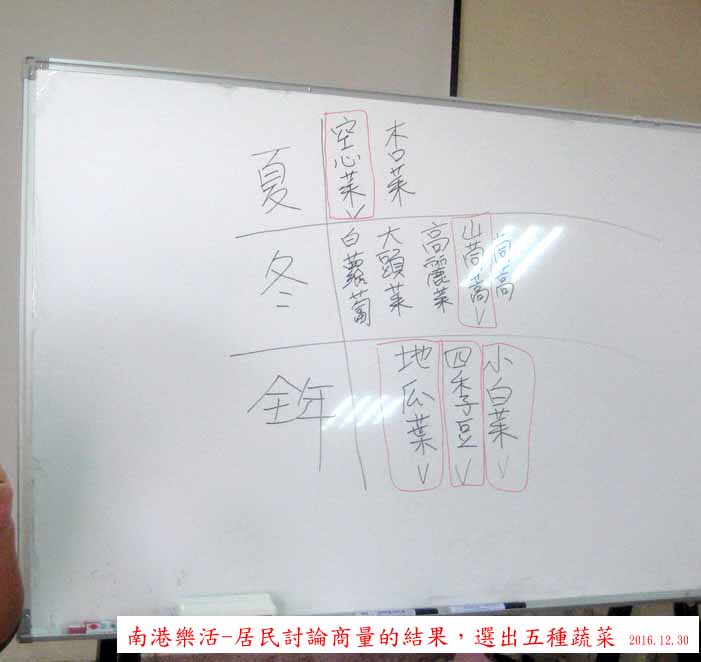 夏
空心菜 ˅
杏菜
冬
白蘿蔔
大頭菜
高麗菜
山茼蒿 ˅
茼蒿
全年
地瓜葉 ˅
四季豆 ˅
小白菜 ˅
南港樂活-居民討論商量的結果，選出五種蔬菜 2016.12.30